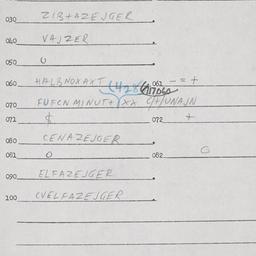 030 ZIB+AZEJGER
040 VAJZER
050 U
060 HALBNOXAXT 061 - = +
070 FUFCN MINUT+
071 $ 072 +
080 CENAZEJGER
081 O 082 O
090 ELFAZEJGER
100 CVELFAZEJGER